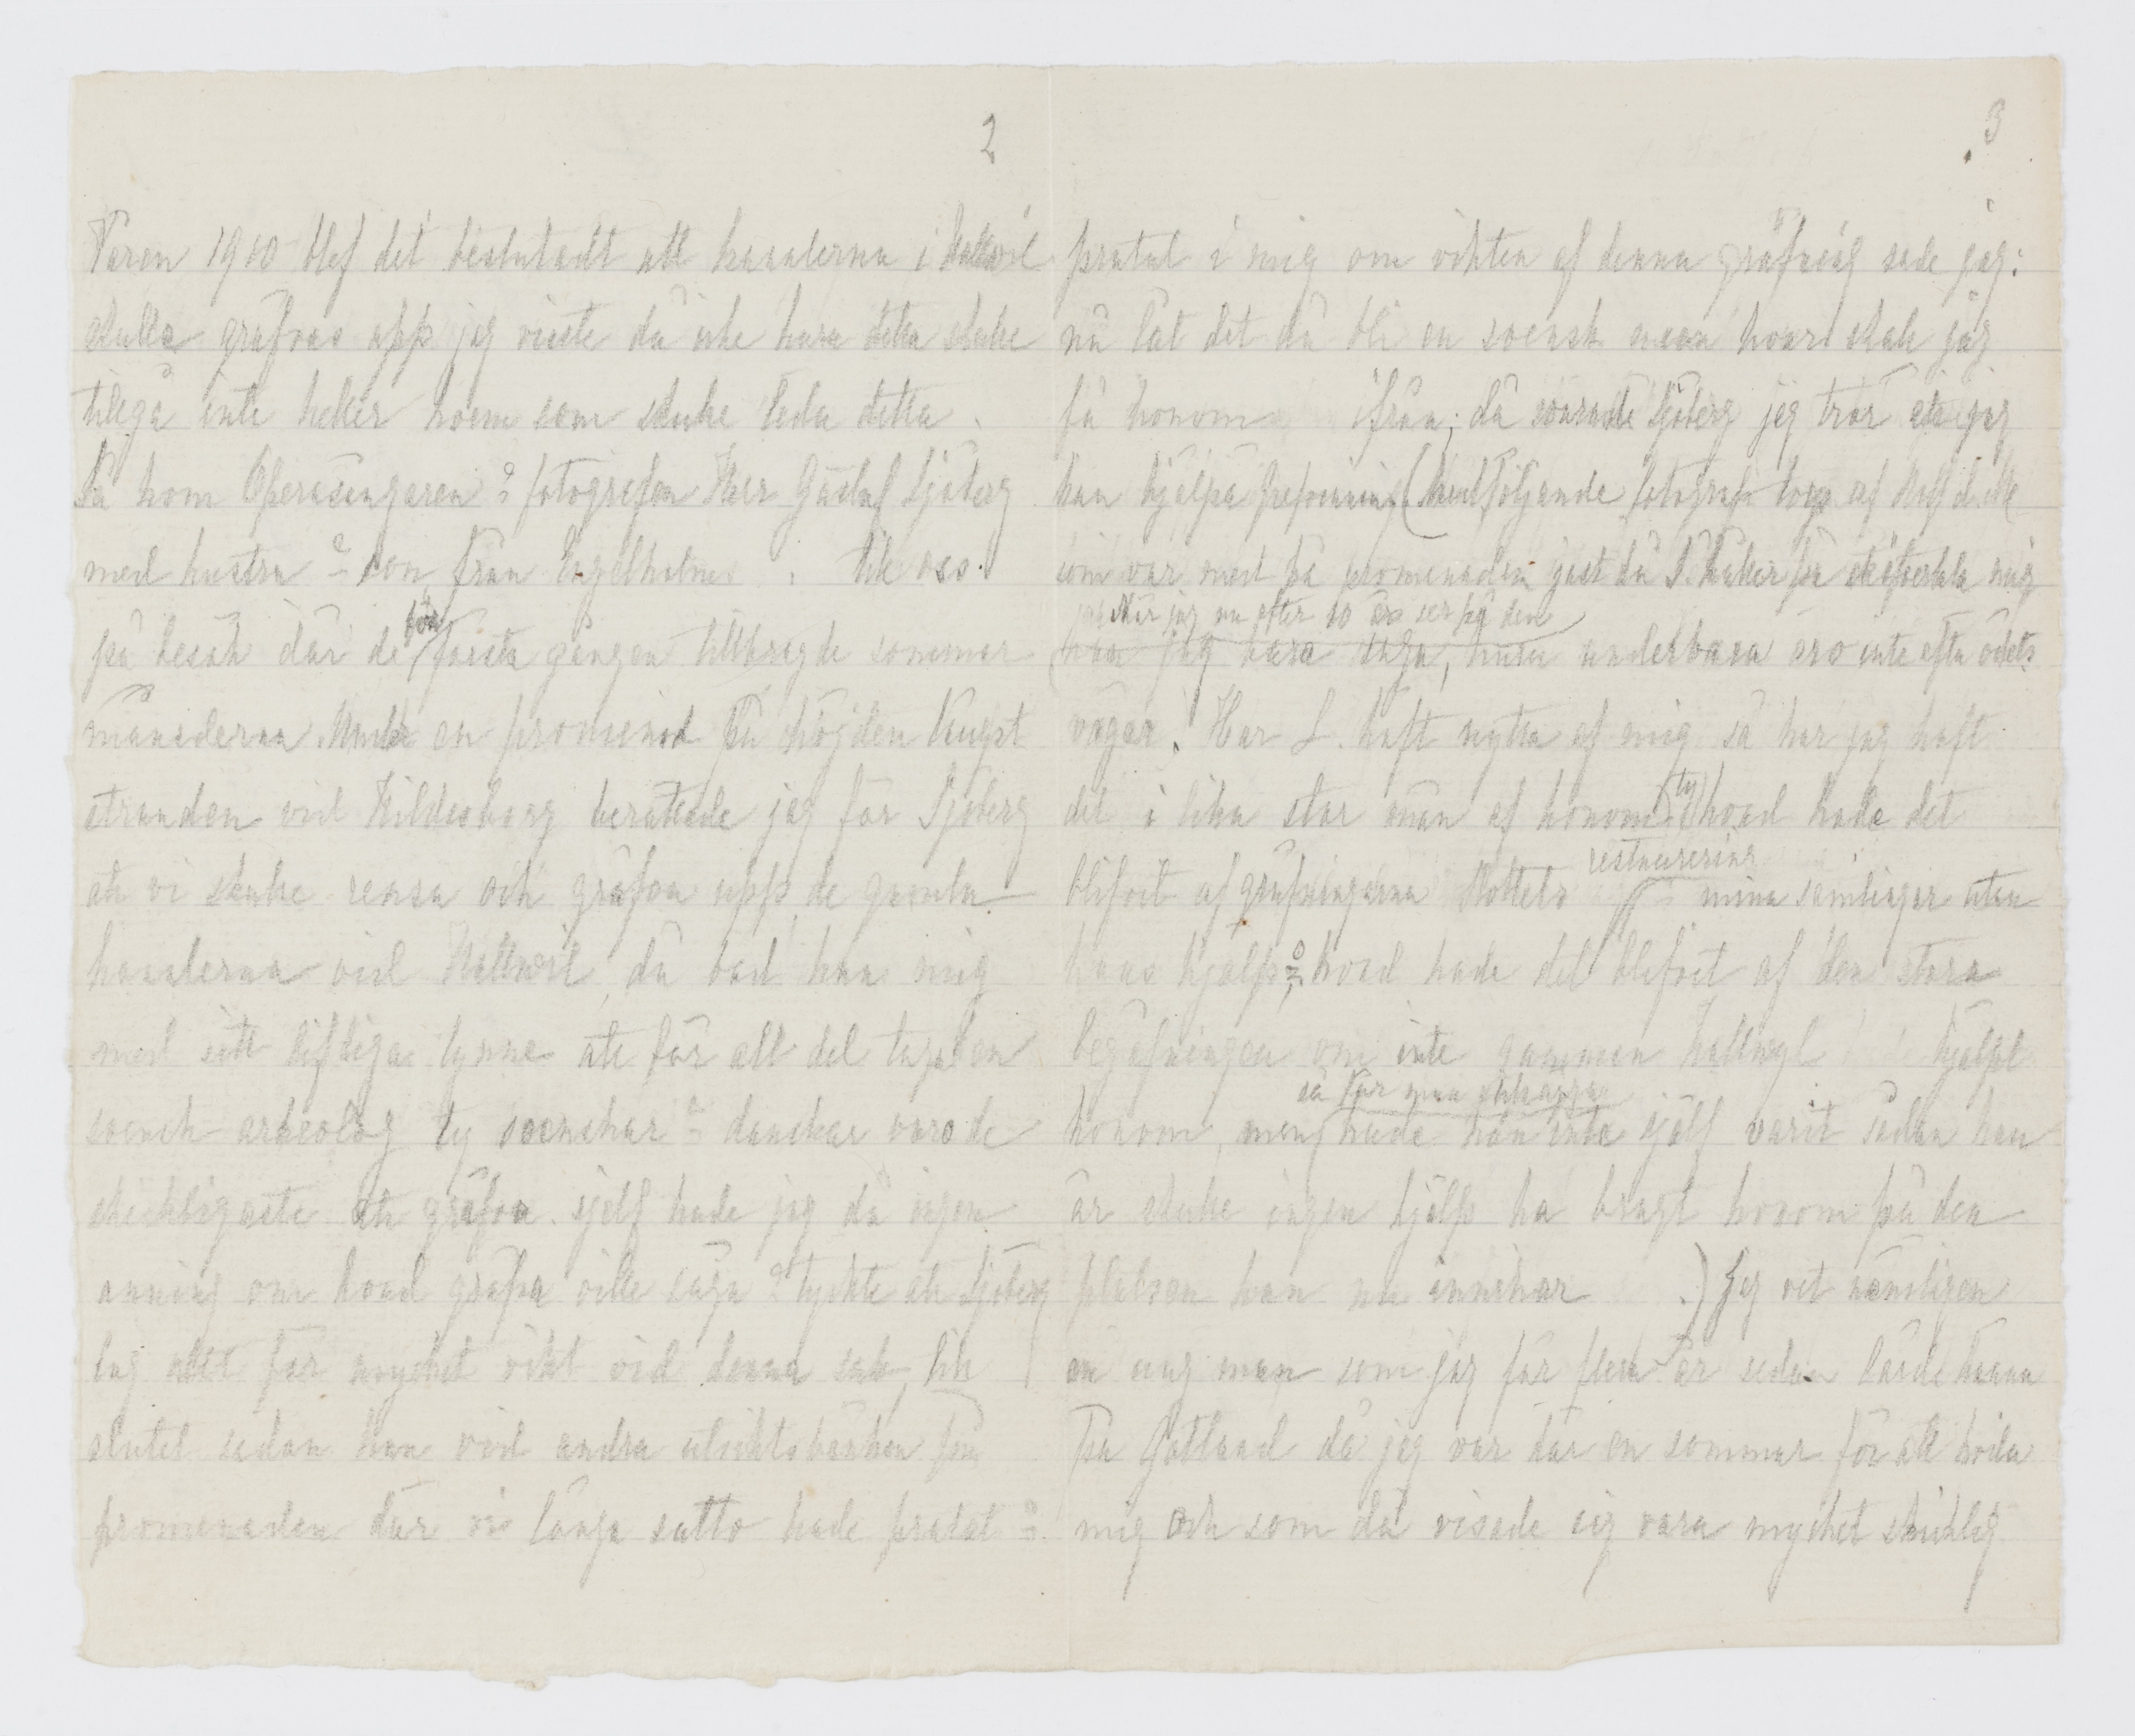 2
Våren 1910 blef det beslutadt att kanalerna i Hallwil
skulle gräfvas upp jag visste då icke huru detta skulle
tillgå inte heller hvem som skulle leda detta.
Så kom Operasångaren & fotografen Herr Gustaf Sjöberg
med hustru & son från Engelholm till oss
på besök där de för första gången tillbragde sommar
månaderna. Under en promenad på höjden längst
stranden vid Hildesborg berättade jag för Sjöberg
att vi skulle rensa och gräfva upp de gamla
kanalerna vid Hallwil, då bad han mig
med sitt lifliga lynne att för all del taga en
svensk arkeolog ty svenskar & danskar voro de
skickligaste att gräfva. sjelf hade jag då ingen
aning om hvad gräfva ville säga & tyckte att Sjöberg
lag allt för mycket vikt vid denna sak, till
slutet sedan han vid andra utsiktsbänken på
promenaden där vi länge sutto hade pratat &
3
pratat i mig om vikten af denna gräfning sade jag:
nå låt det då bli en svensk men hvar skall jag
få honom ifrån; då svarade Sjöberg jag tror att jag
kan hjälpa Grefvinnan (Medföljande fotografi togs af
som var med på promenaden just då S. håller på att öfvertala mig
När jag nu efter 10 år ser på den
kan jag bara säga, huru underbara äro inte ofta ödets
vägar. Har L. haft nytta af mig så har jag haft
det i lika stor mån af honom, ty hvad hade det
blifvit af gräfningarna Slottets restaurering & mina samlingar utan
hans hjälp, & hvad hade det blifvit af den stora
begåfningen om inte gumman Hallwyl hjälpt
honom, men så får man
hade han inte själf varit sådan han
är skulle ingen hjälp ha bragt honom på den
platsen han nu innehar.) Jag vet nämligen
en ung man som jag för flera år sedan lärde känna
På Gotland då jag var där en sommar för att hvila
mig och som då visade sig vara mycket skicklig